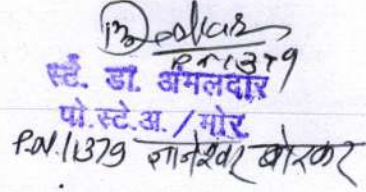 Borkar
PN 1379
स्टे. डा. अंमलदार
पो.स्टे.अ./मोर
P.N./1379 ज्ञानेश्वर बोरकर